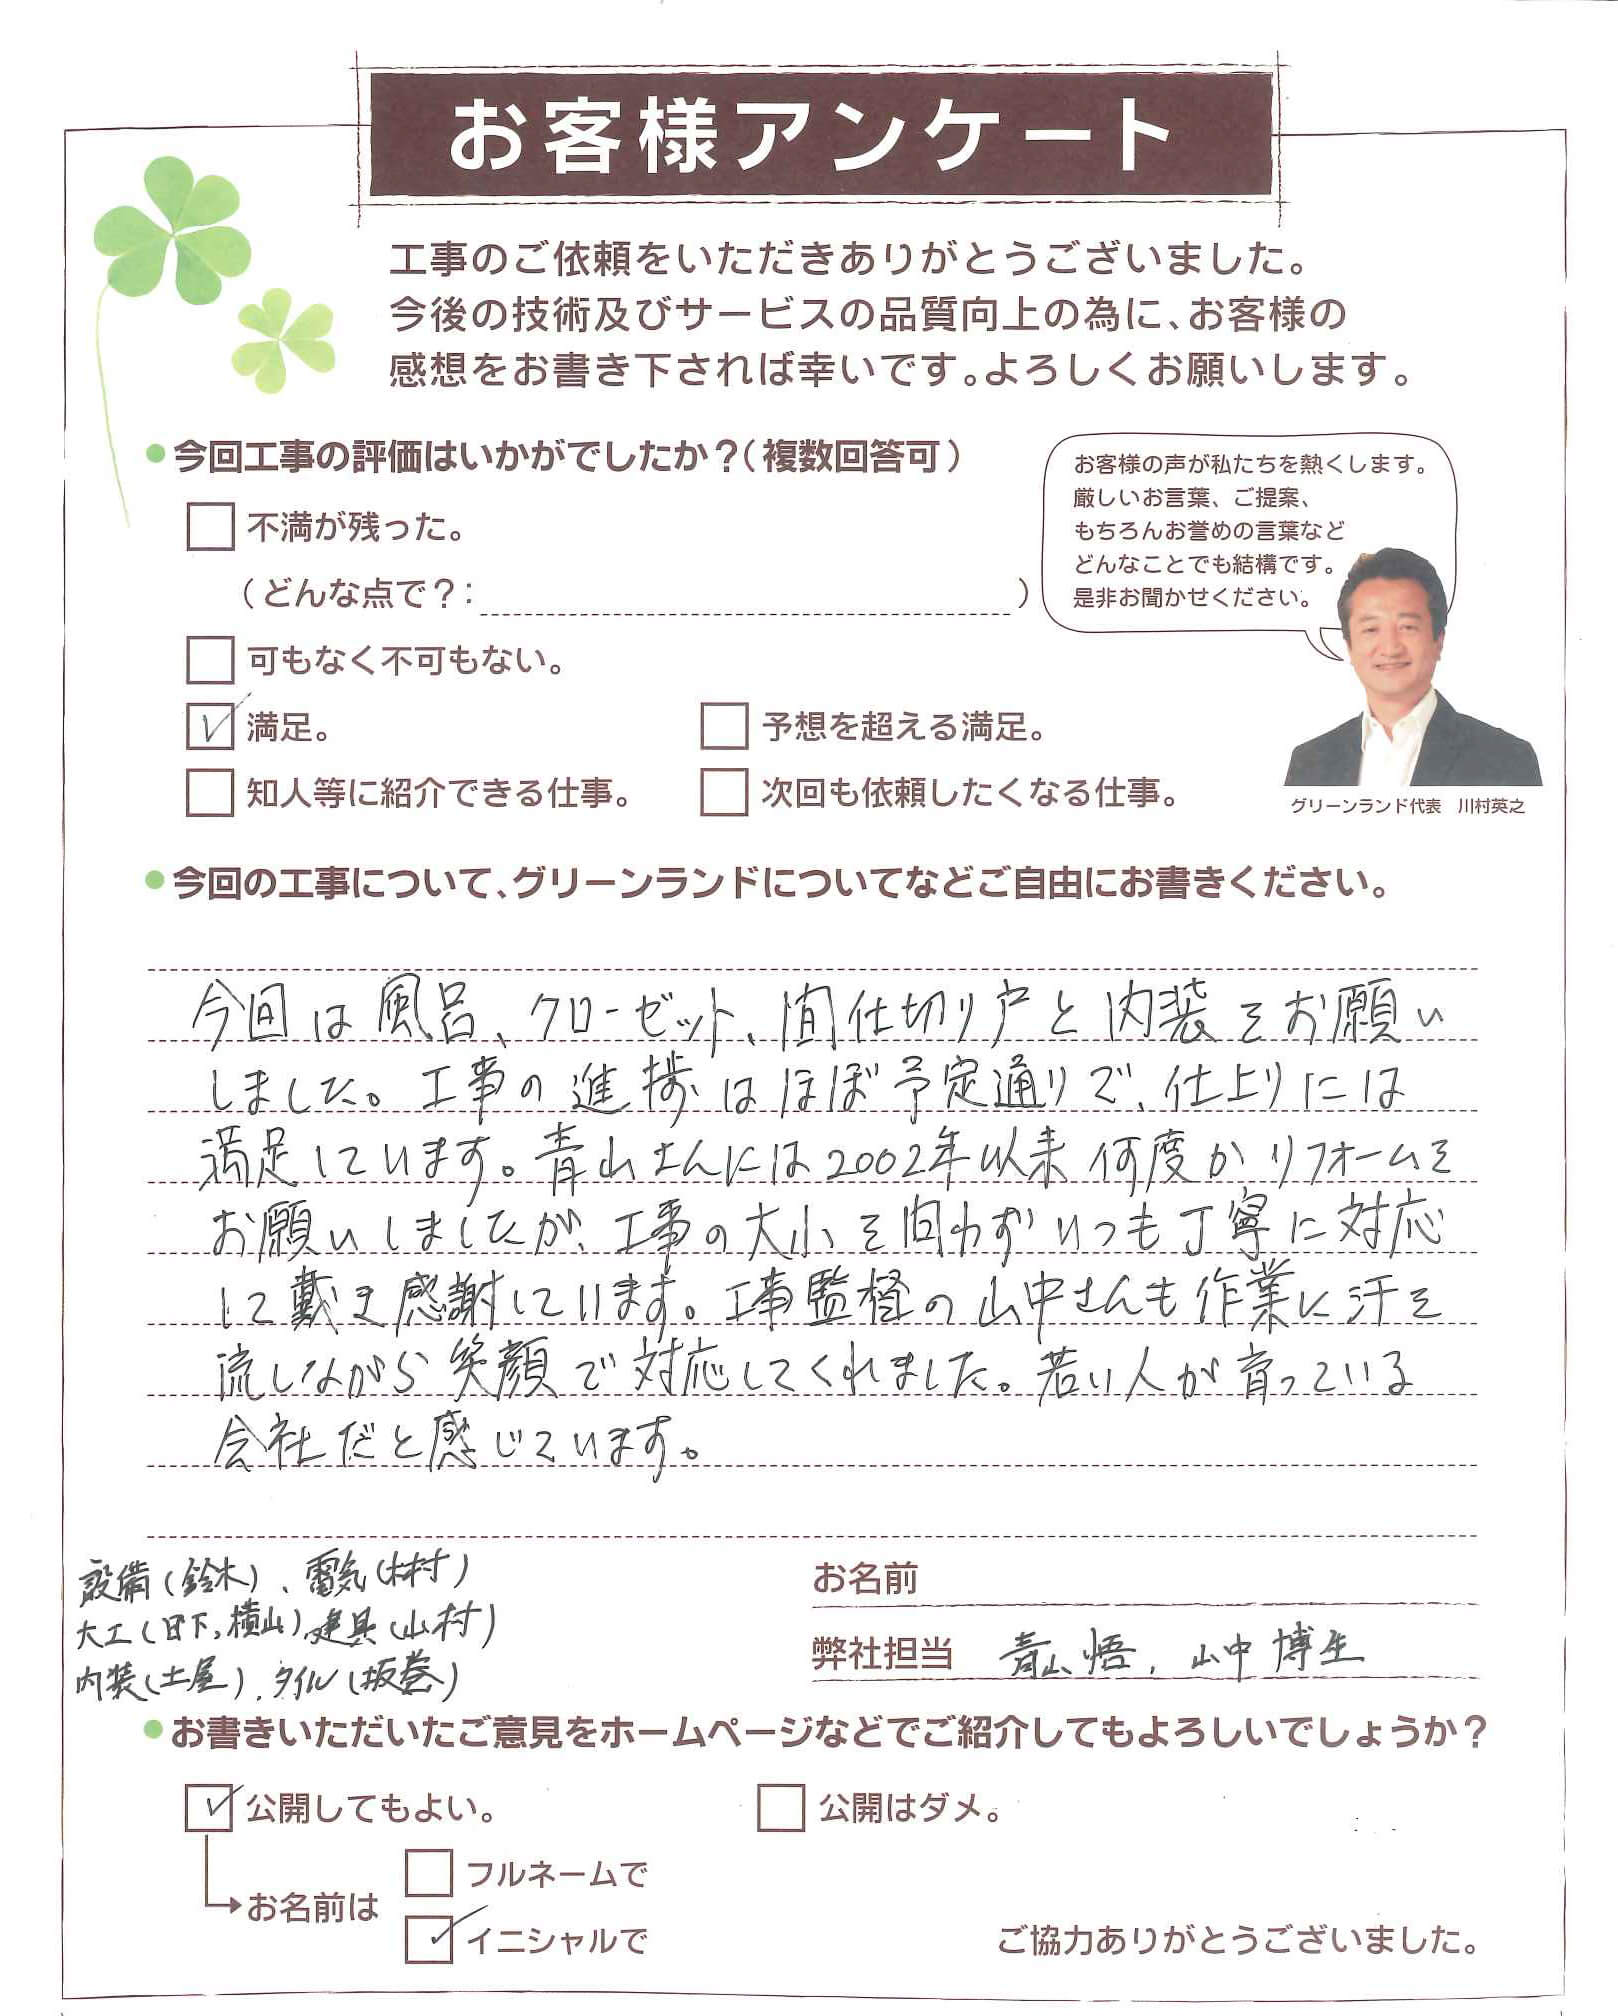 お客様アンケート
工事のご依頼をいただきありがとうございました。
今後の技術及びサービスの品質向上の為に、お客様の
感想をお書き下されば幸いです。よろしくお願いします。
●今回工事の評価はいかがでしたか？（複数回答可）
不満が残った。
（どんな点で？：　）
可もなく不可もない。
満足。
予想を超える満足。
知人等に紹介できる仕事。
次回も依頼したくなる仕事。
お客様の声が私たちを熱くします。
厳しいお言葉、ご提案、
もちろんお誉めの言葉など
どんなことでも結構です。
是非お聞かせください。
グリーンランド代表　川村英之
●今回の工事について、グリーンランドについてなどご自由にお書きください。
今回は風呂、クローゼット、間仕切り戸と内装をお願い
しました。工事の進捗はほぼ予定通りで、仕上りには
満足しています。青山さんには2002年以来何度かリフォームを
お願いしましたが、工事の大小を問わずいつも丁寧に対応
して戴き感謝しています。工事監督の山中さんも作業に汗を
流しながら笑顔で対応してくれました。若い人が育っている
会社だと感じています。
設備（鈴木）、電気（林村）
大工（日下,横山）、建具（山村）
内装（土屋）、タイル（坂巻）
お名前
弊社担当　青山 悟、山中 博生
●お書きいただいたご意見をホームページなどでご紹介してもよろしいでしょうか？
公開してもよい。
公開はダメ。
お名前は
フルネームで
イニシャルで
ご協力ありがとうございました。